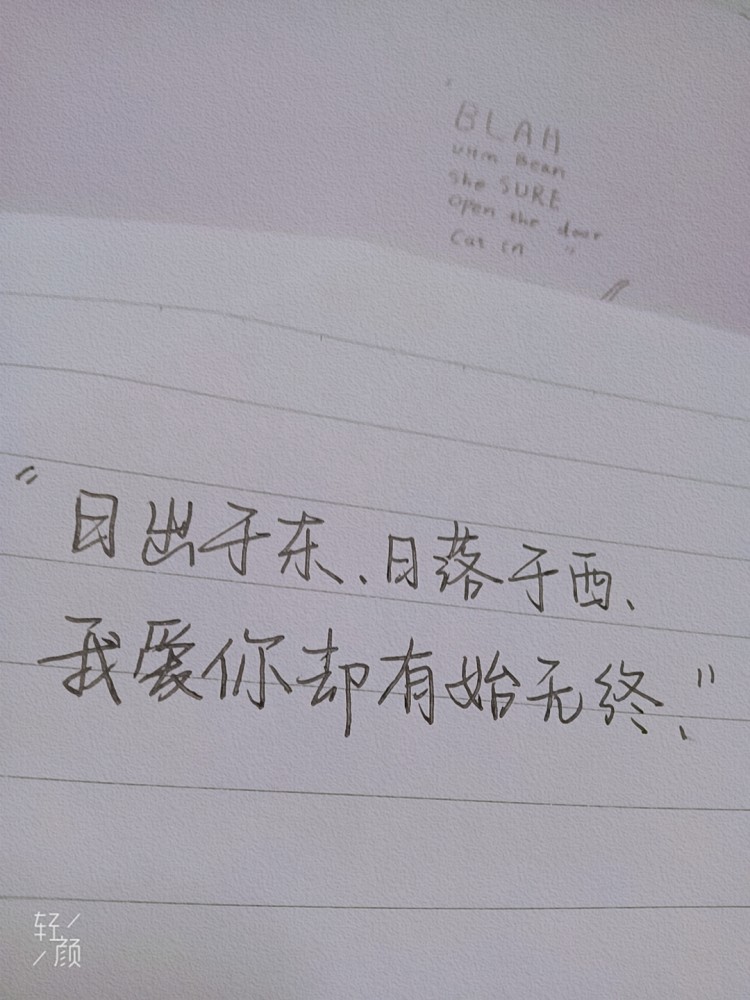 "BLAH
UHm Bean
She SURE
open the door
Cat in"
"日出于东、日落于西、
我爱你却有始无终、"
轻颜